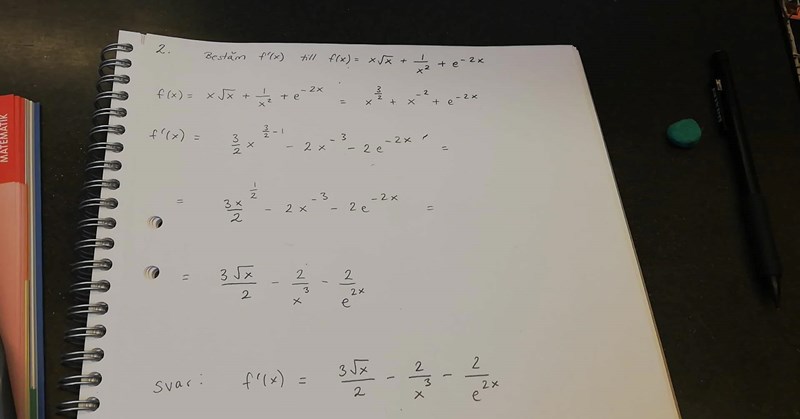 2. Bestäm f'(x) till f(x) = x√x + 1/x² + e^(-2x)
f(x) = x√x + 1/x² + e^(-2x) = x^(3/2) + x^(-2) + e^(-2x)
f'(x) = 3/2 x^(3/2-1) - 2x^(-3) - 2e^(-2x) =
= 3x^(1/2)/2 - 2x^(-3) - 2e^(-2x) =
= 3√x/2 - 2/x³ - 2/e^(2x)
svar: f'(x) = 3√x/2 - 2/x³ - 2/e^(2x)
MATEMATIK